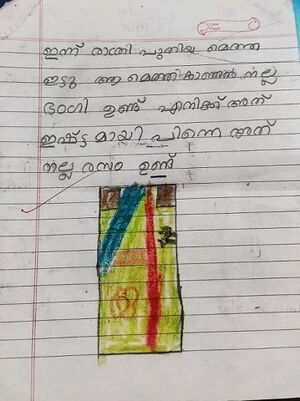 ഇന്ന് രാത്രി പുതിയ മെത്ത
ഇട്ടു ആ മെത്തകാണാൻ നല്ല
ഭംഗി ഉണ്ട് എനിക്ക് അത്
ഇഷ്ട്ടമായി പിന്നെ അത്
നല്ല രസം ഉണ്ട്